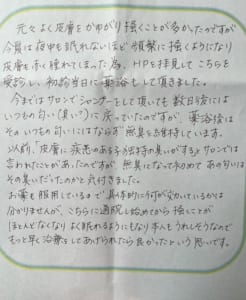 元々よく皮膚をかゆがり掻くことが多かったのですが
今回は夜中も眠れないほど頻繁に掻くようになり
皮膚も赤く腫れてしまった為、HPを拝見してこちらを
受診し、初診当日に薬浴もして頂きました。
今まではサロンでシャンプーをして頂いても数日後には
いつもの匂い(臭い?)に戻っていたのですが、薬浴後は
そのいつもの匂いにはならず無臭を維持しています。
以前「皮膚に疾患のある子独特の臭いがする」とサロンでは
言われたことがあったのですが、無臭になって初めてあの匂いは
その臭いだったのかと気付きました。
お薬も服用しているので具体的に何が効いているかは
分かりませんが、こちらに通院し始めてから掻くことが
ほとんどなくなりよく眠れるようにもなり本人もうれしそうなので
もっと早く治療をしてあげられたら良かったという思いです。